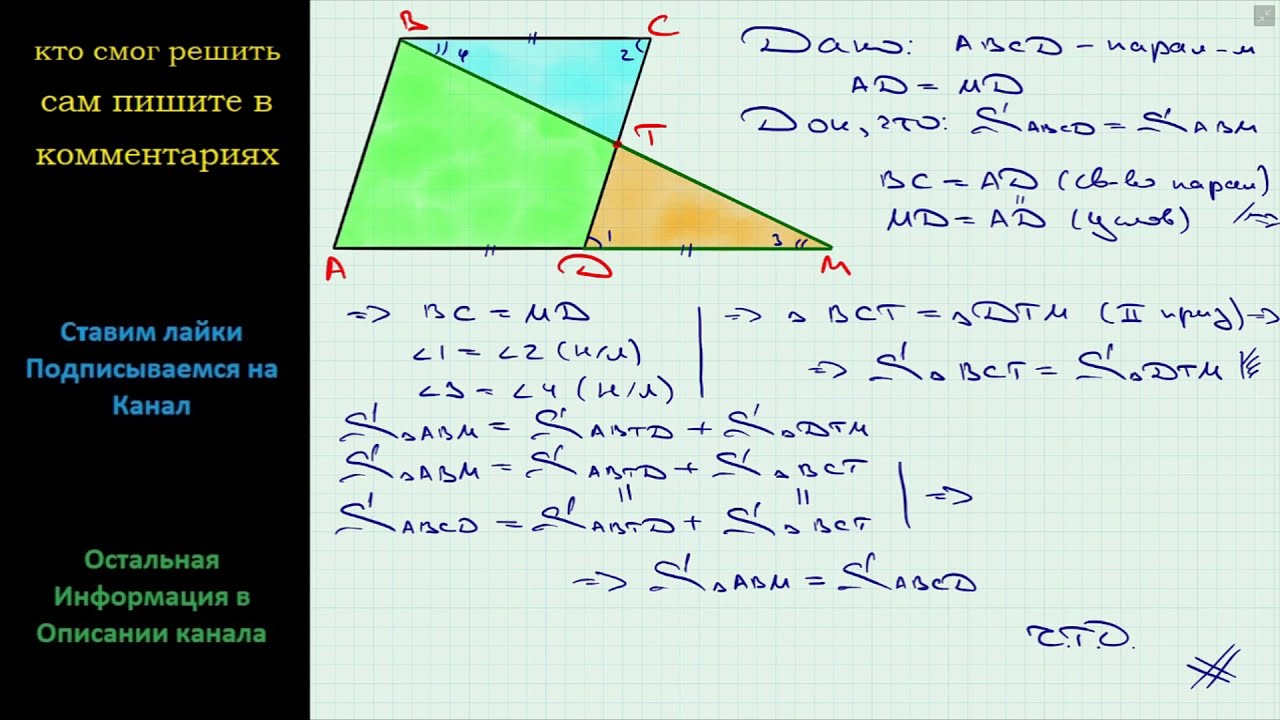 кто смог решить
сам пишите в
комментариях
Ставим лайки
Подписываемся на
Канал
Остальная
Информация в
Описании канала
B
C
4
2
T
1
3
A
D
M
Дано: ABCD - парал-м
AD = MD
Док, что: S ABCD = S ABM
BC = AD (св-во парал)
MD = AD (услов) =>
=> BC = MD
∠1 = ∠2 (н/л)
∠3 = ∠4 (н/л)
=> △BCT = △DTM (II приз) =>
=> S△BCT = S△DTM
S△ABM = S ABTD + S△DTM
S△ABM = S ABTD + S△BCT
S ABCD = S ABTD + S△BCT
=>
=> S△ABM = S ABCD
Ч.Т.Д.